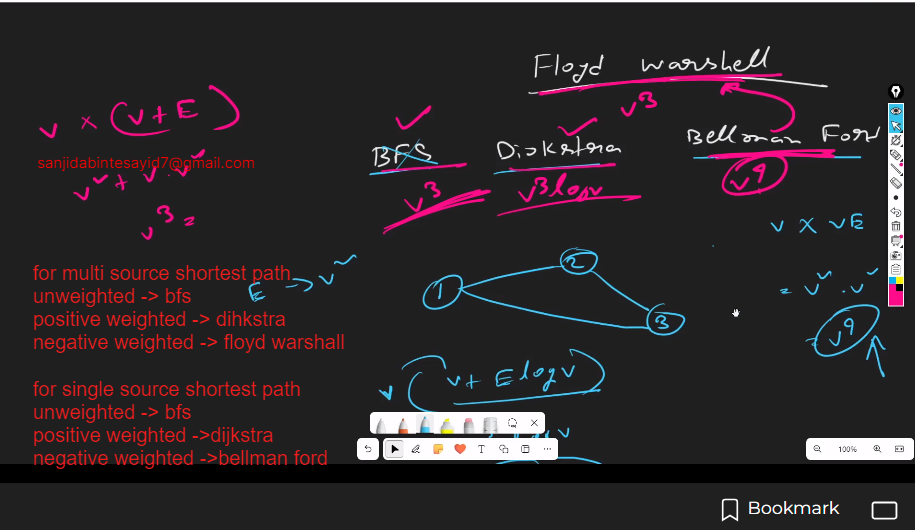 Floyd warshell
v³
v × (v + E)
sanjidabintesayid7@gmail.com
v² + v . v²
v³ =
BFS
Dijkstra
Bellman Ford
v³
v³logv
v⁴
v × vE
= v² . v²
= v⁴
E -> v²
1
2
3
for multi source shortest path
unweighted -> bfs
positive weighted -> dihkstra
negative weighted -> floyd warshall
for single source shortest path
unweighted -> bfs
positive weighted ->dijkstra
negative weighted ->bellman ford
v (v + E logv)
100%
Bookmark